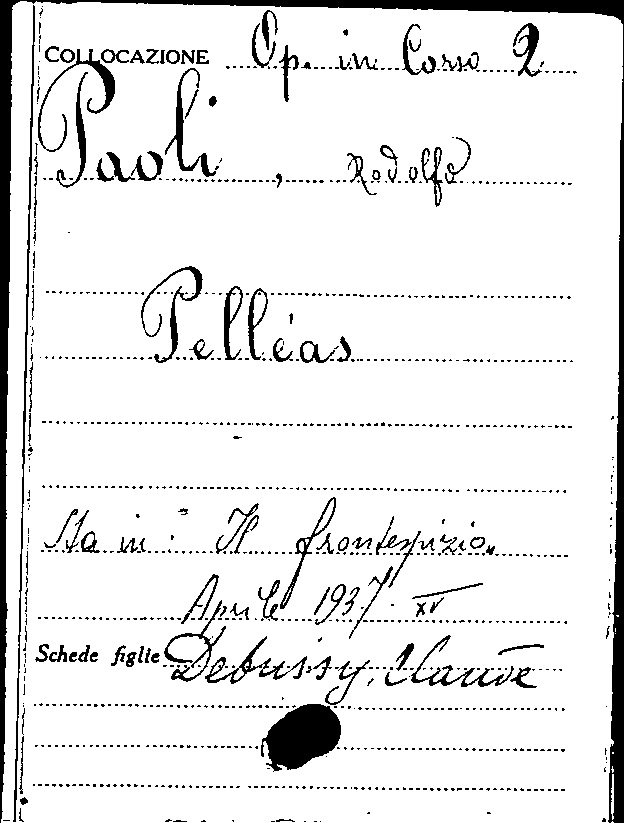 COLLOCAZIONE Op. in Corso 2
Paoli, Rodolfo
Pelléas
Sta in: "Il frontespizio"
Aprile 1937. XV
Schede figlie Debussy, Claude